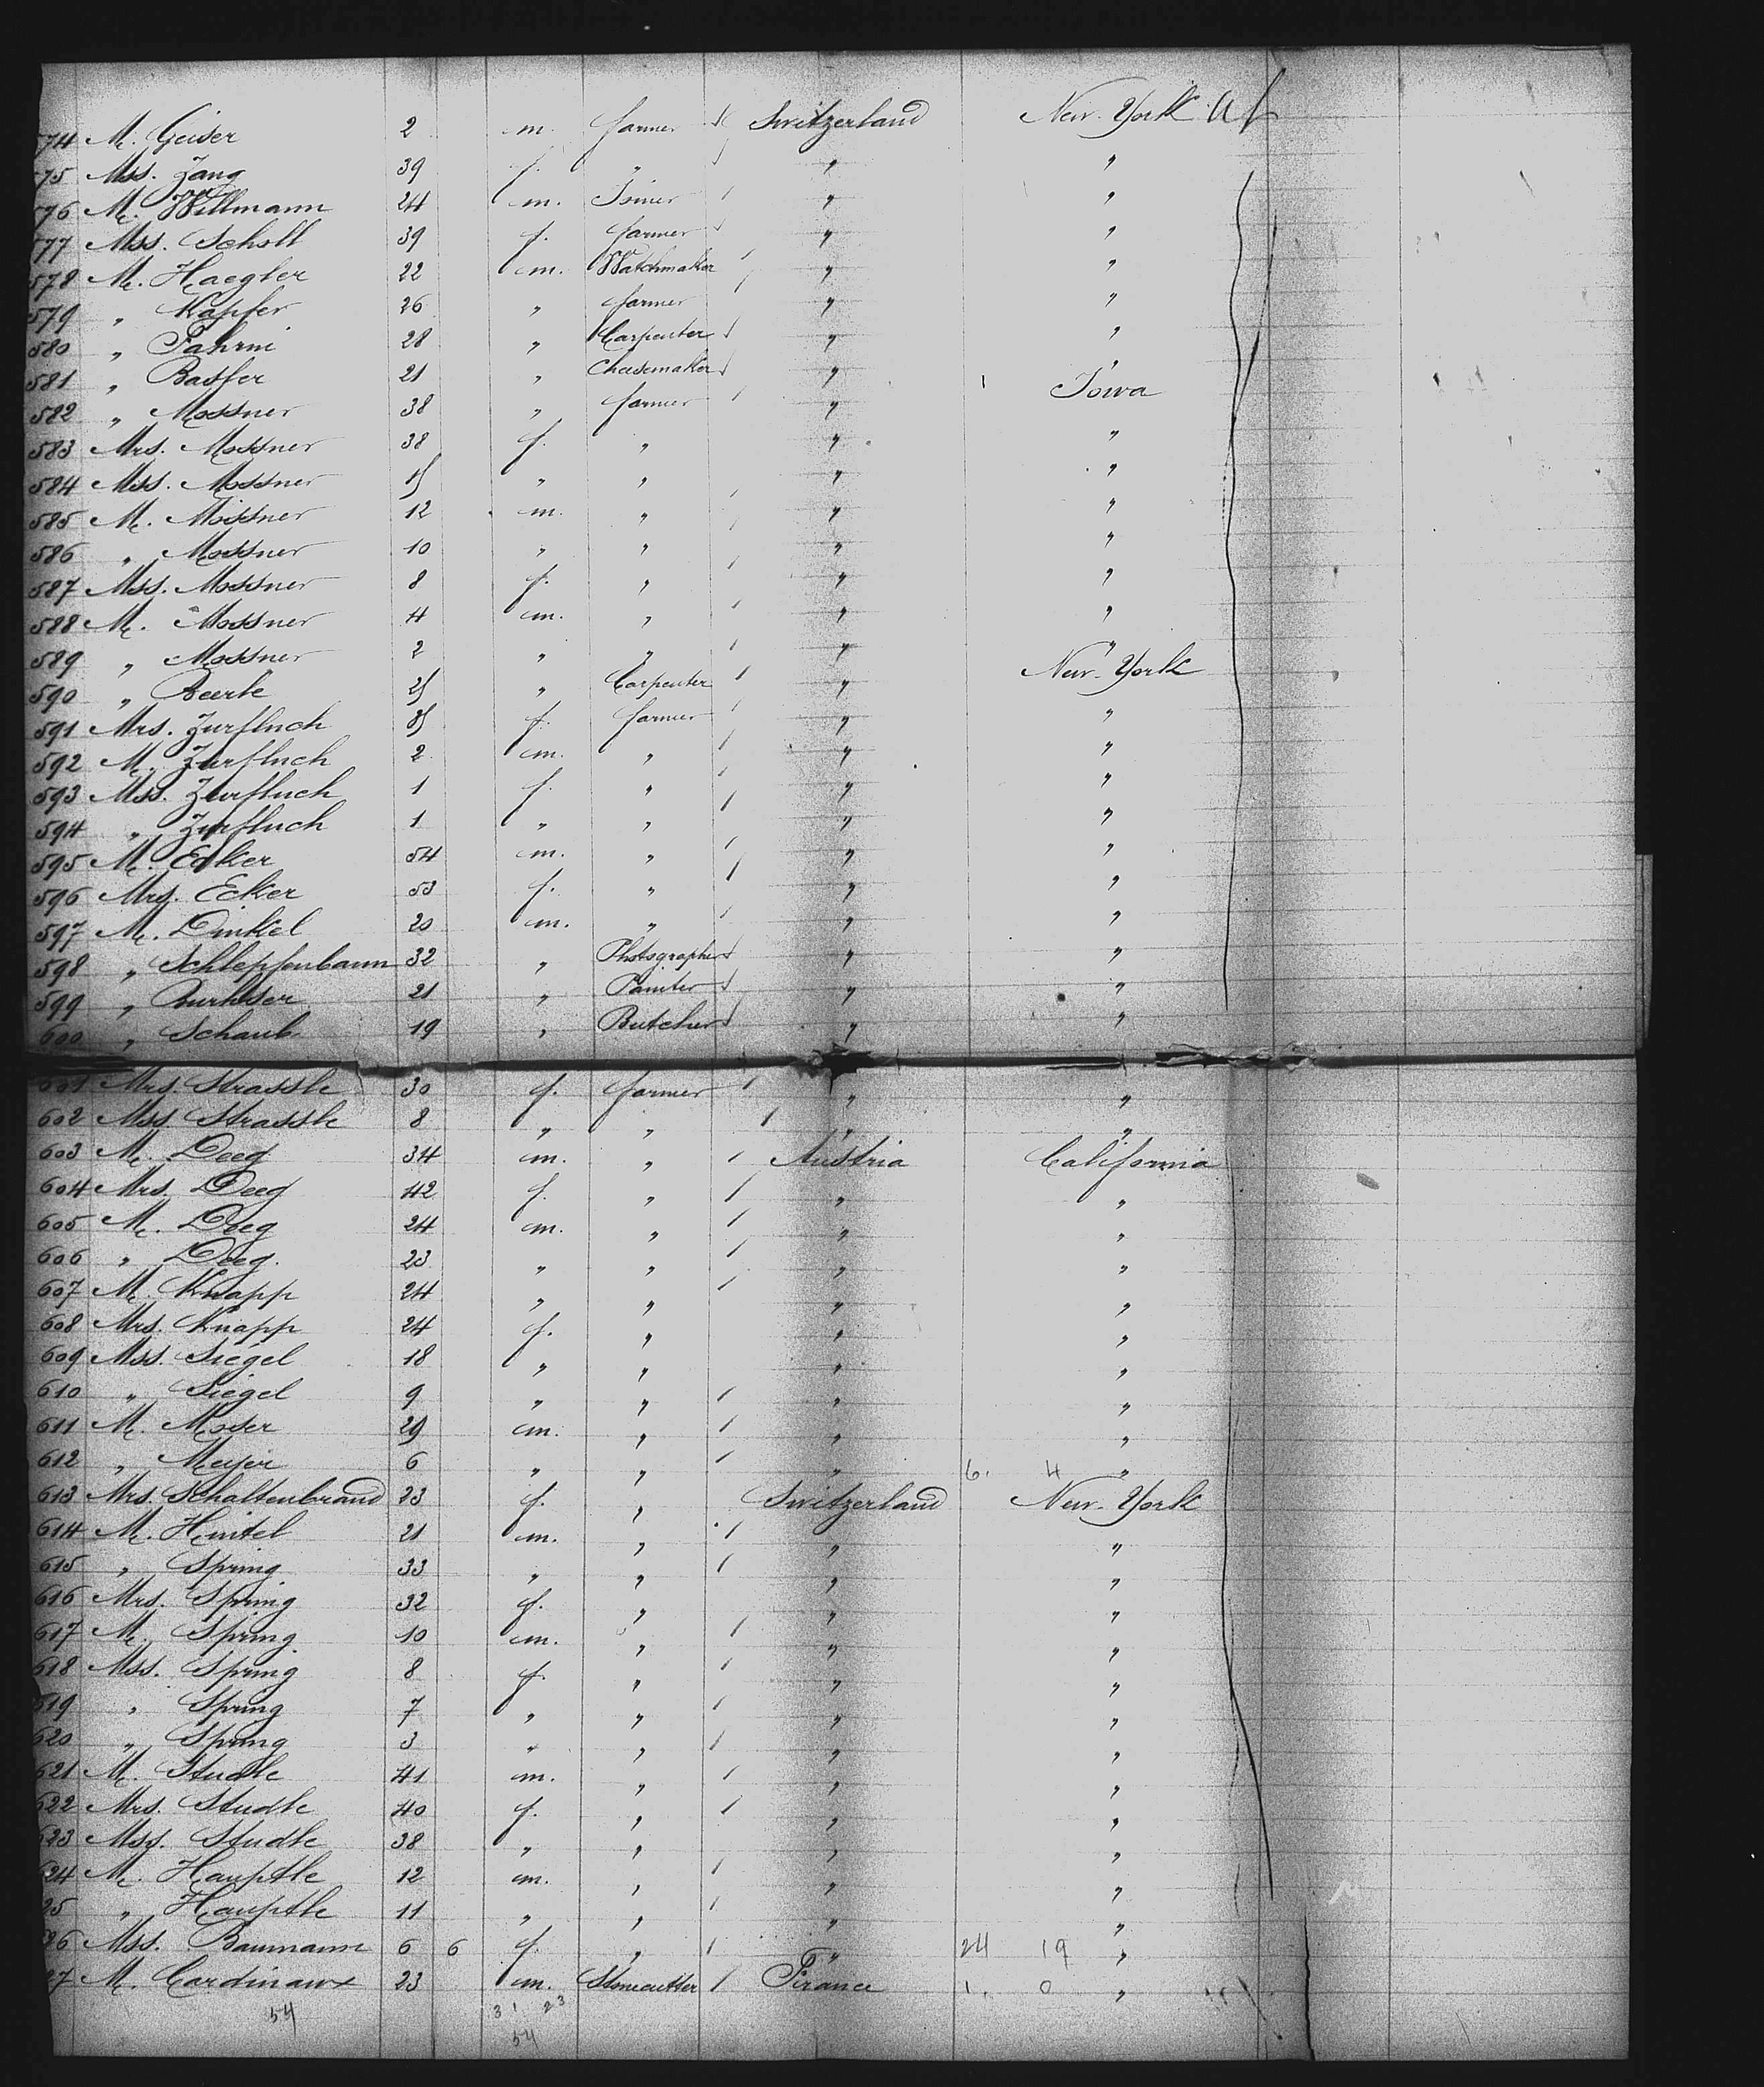 574 M. Geiser 2 m. farmer Switzerland New-York
575 Mss. Zang 39 f. " " "
576 M. Willmann 24 m. Joiner " "
577 Mss. Scholl 39 f. farmer " "
578 M. Haegler 22 m. Watchmaker " "
579 " Kapfer 26 " farmer " "
580 " Fahrni 28 " Carpenter " "
581 " Basler 21 " Cheesemaker " "
582 " Mossner 38 " farmer " Iowa
583 Mrs. Mossner 38 f. " " "
584 Mss. Mossner 15 " " " "
585 M. Mossner 12 m. " " "
586 " Mossner 10 " " " "
587 Mss. Mossner 8 f. " " "
588 M. Mossner 4 m. " " "
589 " Mossner 2 " " " "
590 " Beerle 25 " Carpenter " New-York
591 Mrs. Zurfluch 25 f. farmer " "
592 M. Zurfluch 2 m. " " "
593 Mss. Zurfluch 1 f. " " "
594 " Zurfluch 1 " " " "
595 M. Ecker 54 m. " " "
596 Mrs. Ecker 53 f. " " "
597 M. Dinkel 20 m. " " "
598 " Schleppenbaum 32 " Photographer " "
599 " 21 " Painter " "
600 " Schaub 19 " Butcher " "
601 Mrs. Strassle 30 f. farmer " "
602 Mss. Strassle 8 " " " "
603 M. Deeg 34 m. " Austria California
604 Mrs. Deeg 42 f. " " "
605 M. Deeg 24 m. " " "
606 " Deeg. 23 " " " "
607 M. Knapp 24 " " " "
608 Mrs. Knapp 24 f. " " "
609 Mss. Siegel 18 " " " "
610 " Siegel 9 " " " "
611 M. Moser 29 m. " " "
612 " Meyer 6 " " " 6. 4 "
613 Mrs. Schaltenbrand 23 f. " Switzerland New-York
614 M. Hintel 21 m. " " "
615 " Spring 33 " " " "
616 Mrs. Spring 32 f. " " "
617 M. Spring 10 m. " " "
618 Mss. Spring 8 f. " " "
619 " Spring 7 " " " "
620 " Spring 3 " " " "
621 M. Studle 41 m. " " "
622 Mrs. Studle 40 f. " " "
623 Mss. Studle 38 " " " "
624 M. Hauptle 12 m. " " "
25 " Hauptle 11 " " " "
26 Mss. Baumann 6 6 f. " " 24 19 "
27 M. Cardinaux 23 m. Stonecutter France 1. 0 "
54 31 23
54